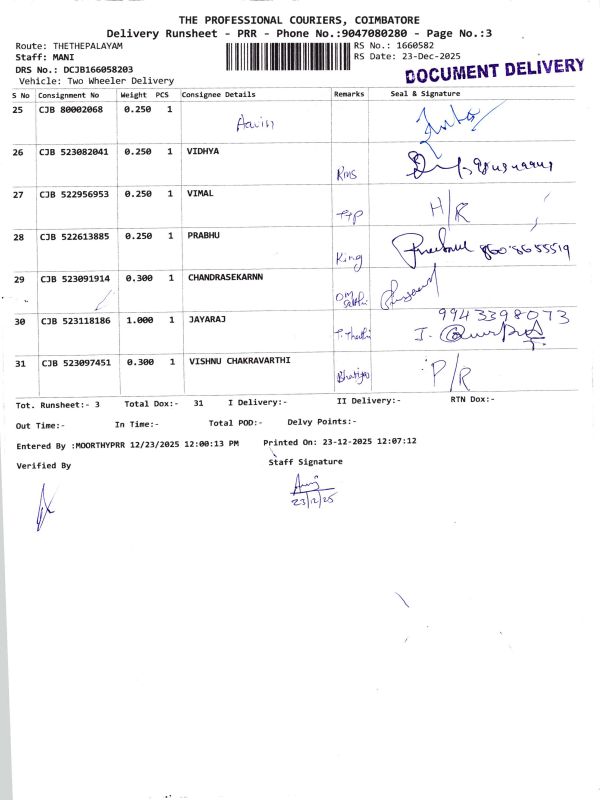 THE PROFESSIONAL COURIERS, COIMBATORE
Delivery Runsheet - PRR - Phone No.:9047080280 - Page No.:3
Route: THETHEPALAYAM
RS No.: 1660582
Staff: MANI
RS Date: 23-Dec-2025
DRS No.: DCJB166058203
DOCUMENT DELIVERY
Vehicle: Two Wheeler Delivery
S No Consignment No Weight PCS Consignee Details Remarks Seal & Signature
25 CJB 80002068 0.250 1
26 CJB 523082041 0.250 1 VIDHYA
27 CJB 522956953 0.250 1 VIMAL
H/R
28 CJB 522613885 0.250 1 PRABHU
King
29 CJB 523091914 0.300 1 CHANDRASEKARNN
9943398073
30 CJB 523118186 1.000 1 JAYARAJ
31 CJB 523097451 0.300 1 VISHNU CHAKRAVARTHI
P/R
Tot. Runsheet:- 3 Total Dox:- 31 I Delivery:- II Delivery:- RTN Dox:-
Out Time:- In Time:- Total POD:- Delvy Points:-
Entered By :MOORTHYPRR 12/23/2025 12:00:13 PM Printed On: 23-12-2025 12:07:12
Verified By Staff Signature
23/12/25